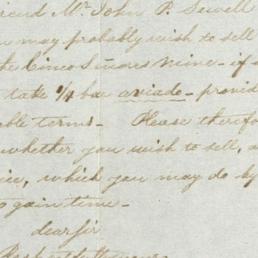 friend Mr John P. Sewell
you may probably wish to sell
the Cinco Señores Mine - if s
take 1/4 bar aviado - provid
able terms - Please therefo
whether you wish to sell, a
ice, which you may do by
to gain time -
dear Sir